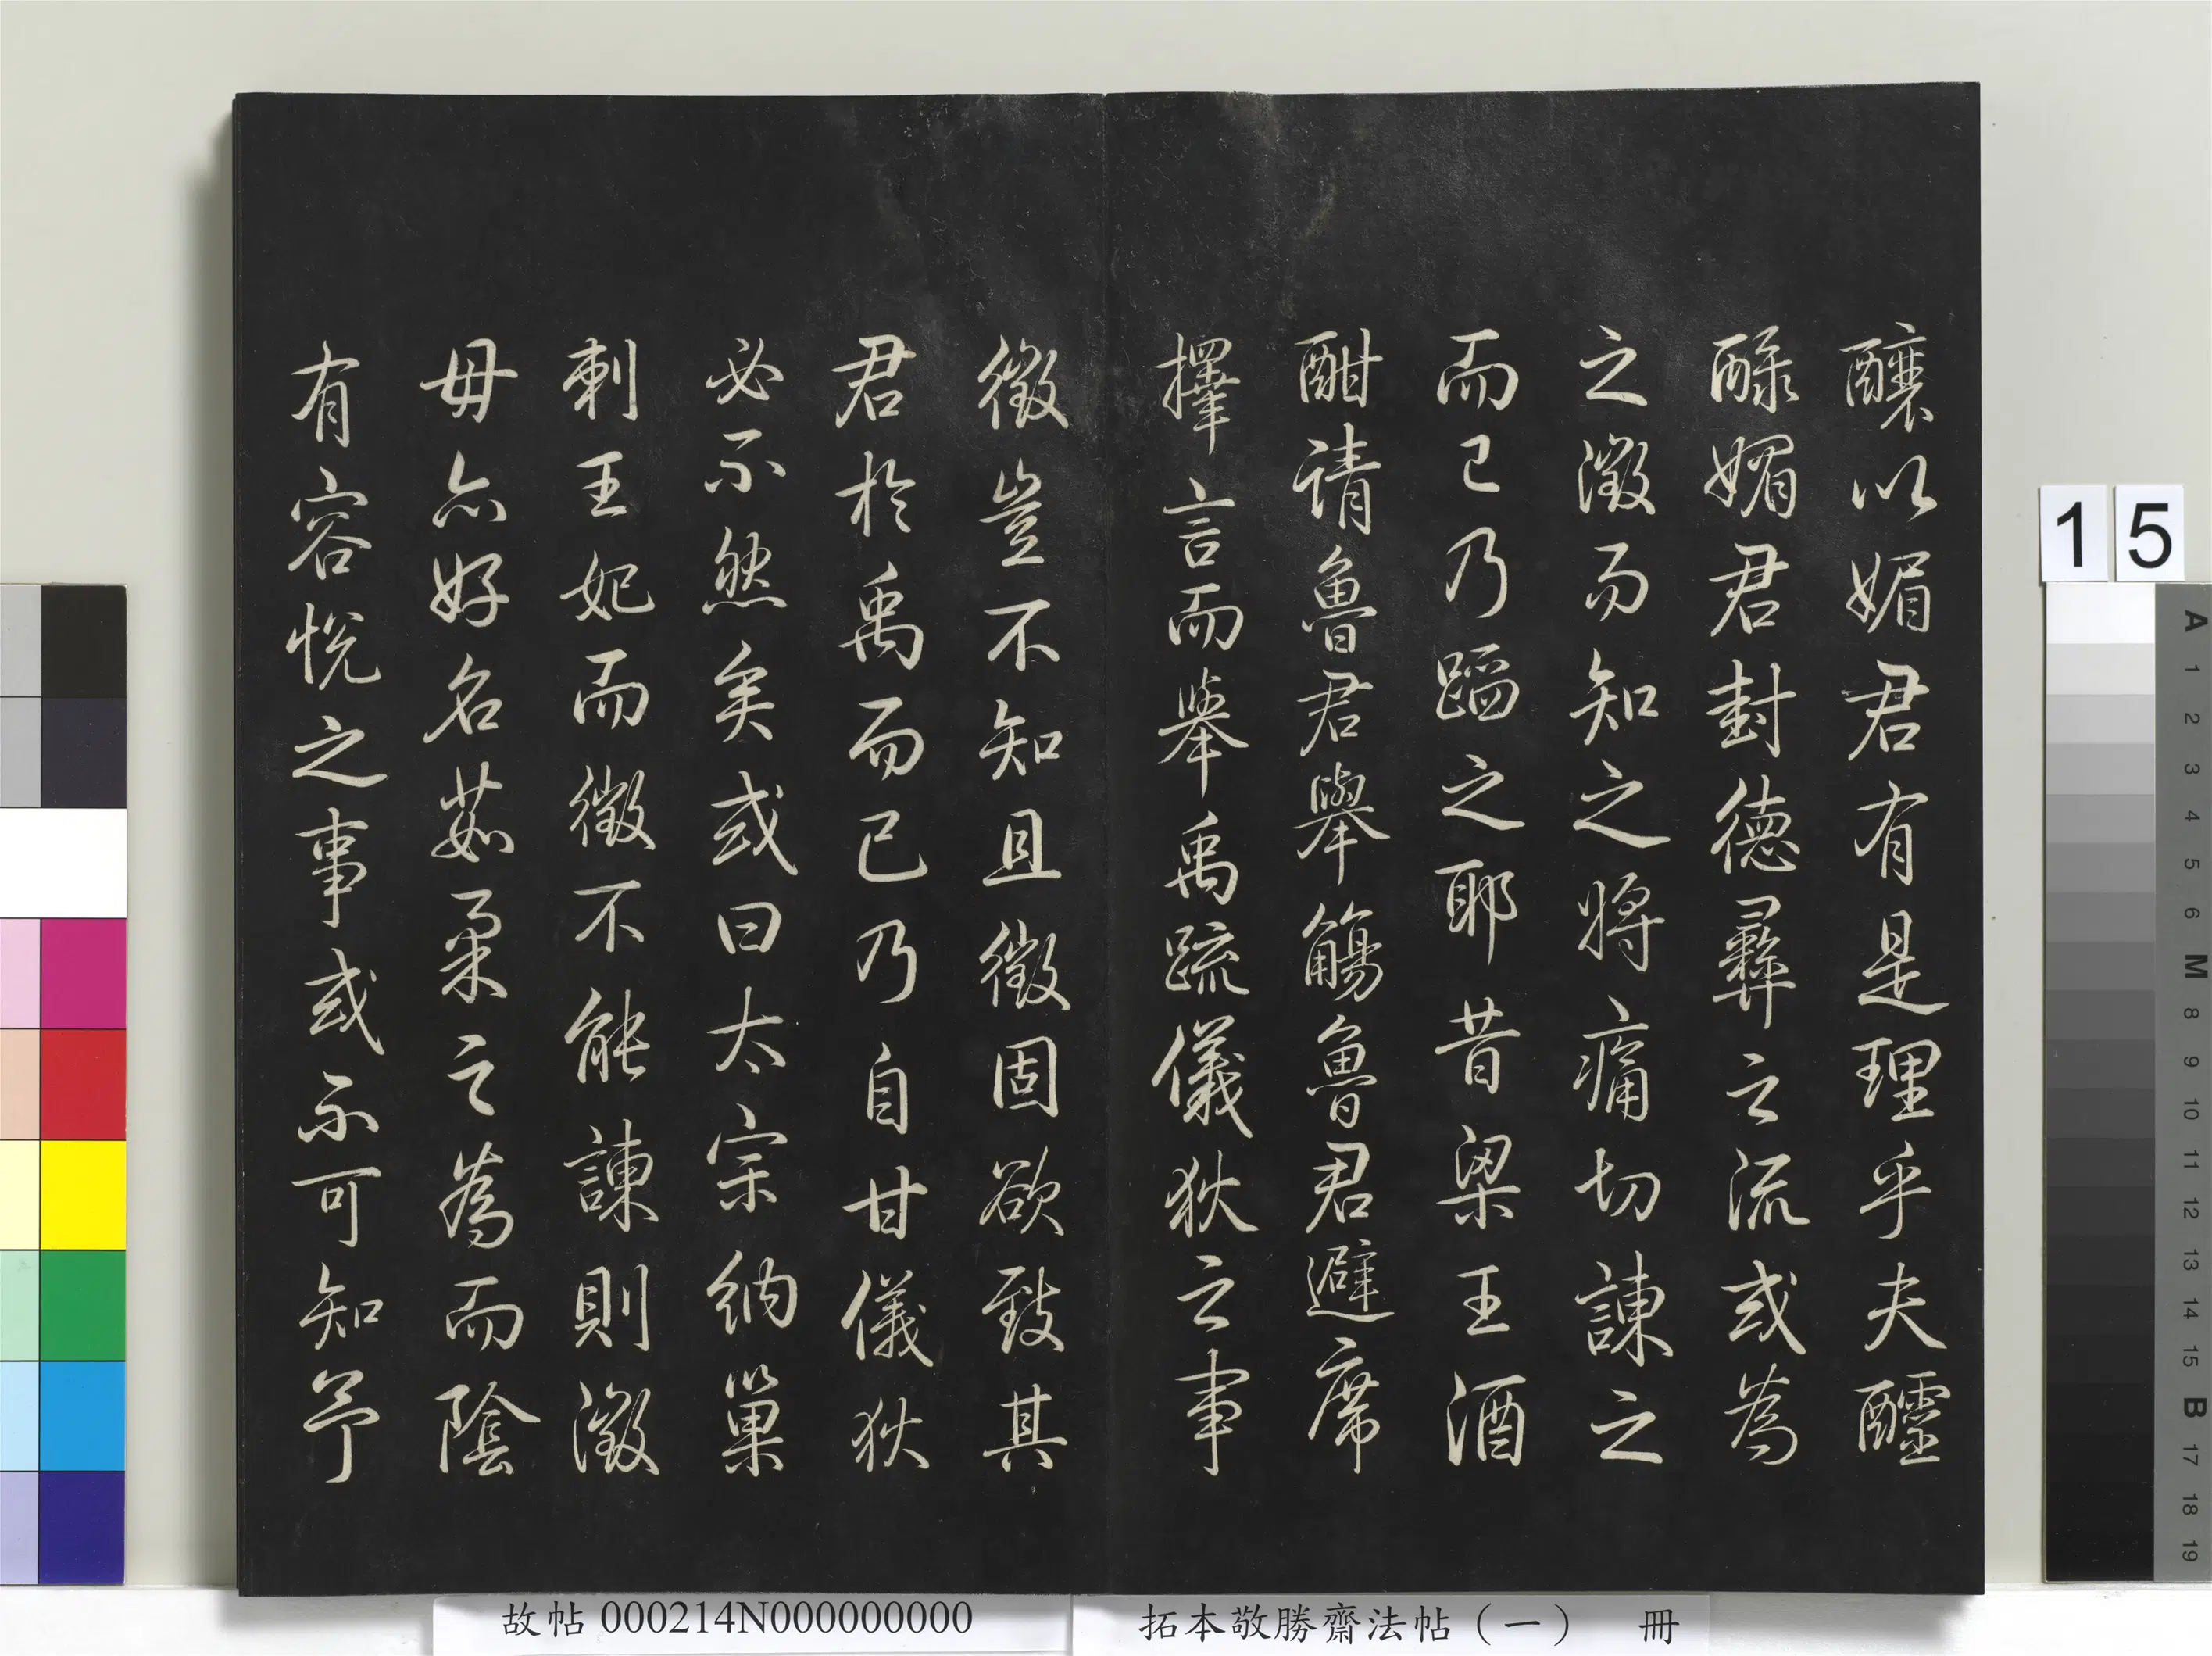 釀以媚君有是理乎夫醽
醁媚君封德彝之流或為
之澂而知之將痛切諫之
而已乃蹈之耶昔梁王酒
酣请魯君舉觴魯君避席
擇言而舉禹疏儀狄之事
徵豈不知且徵固欲致其
君於禹而已乃自甘儀狄
必不然矣或曰太宗納巢
刺王妃而徵不能諫則澂
毋亦好名茹柔之為而陰
有容悅之事或不可知予
15
A 1 2 3 4 5 6 M 8 9 10 11 12 13 14 15 B 17 18 19
故帖 000214N000000000
拓本敬勝齋法帖（一） 冊